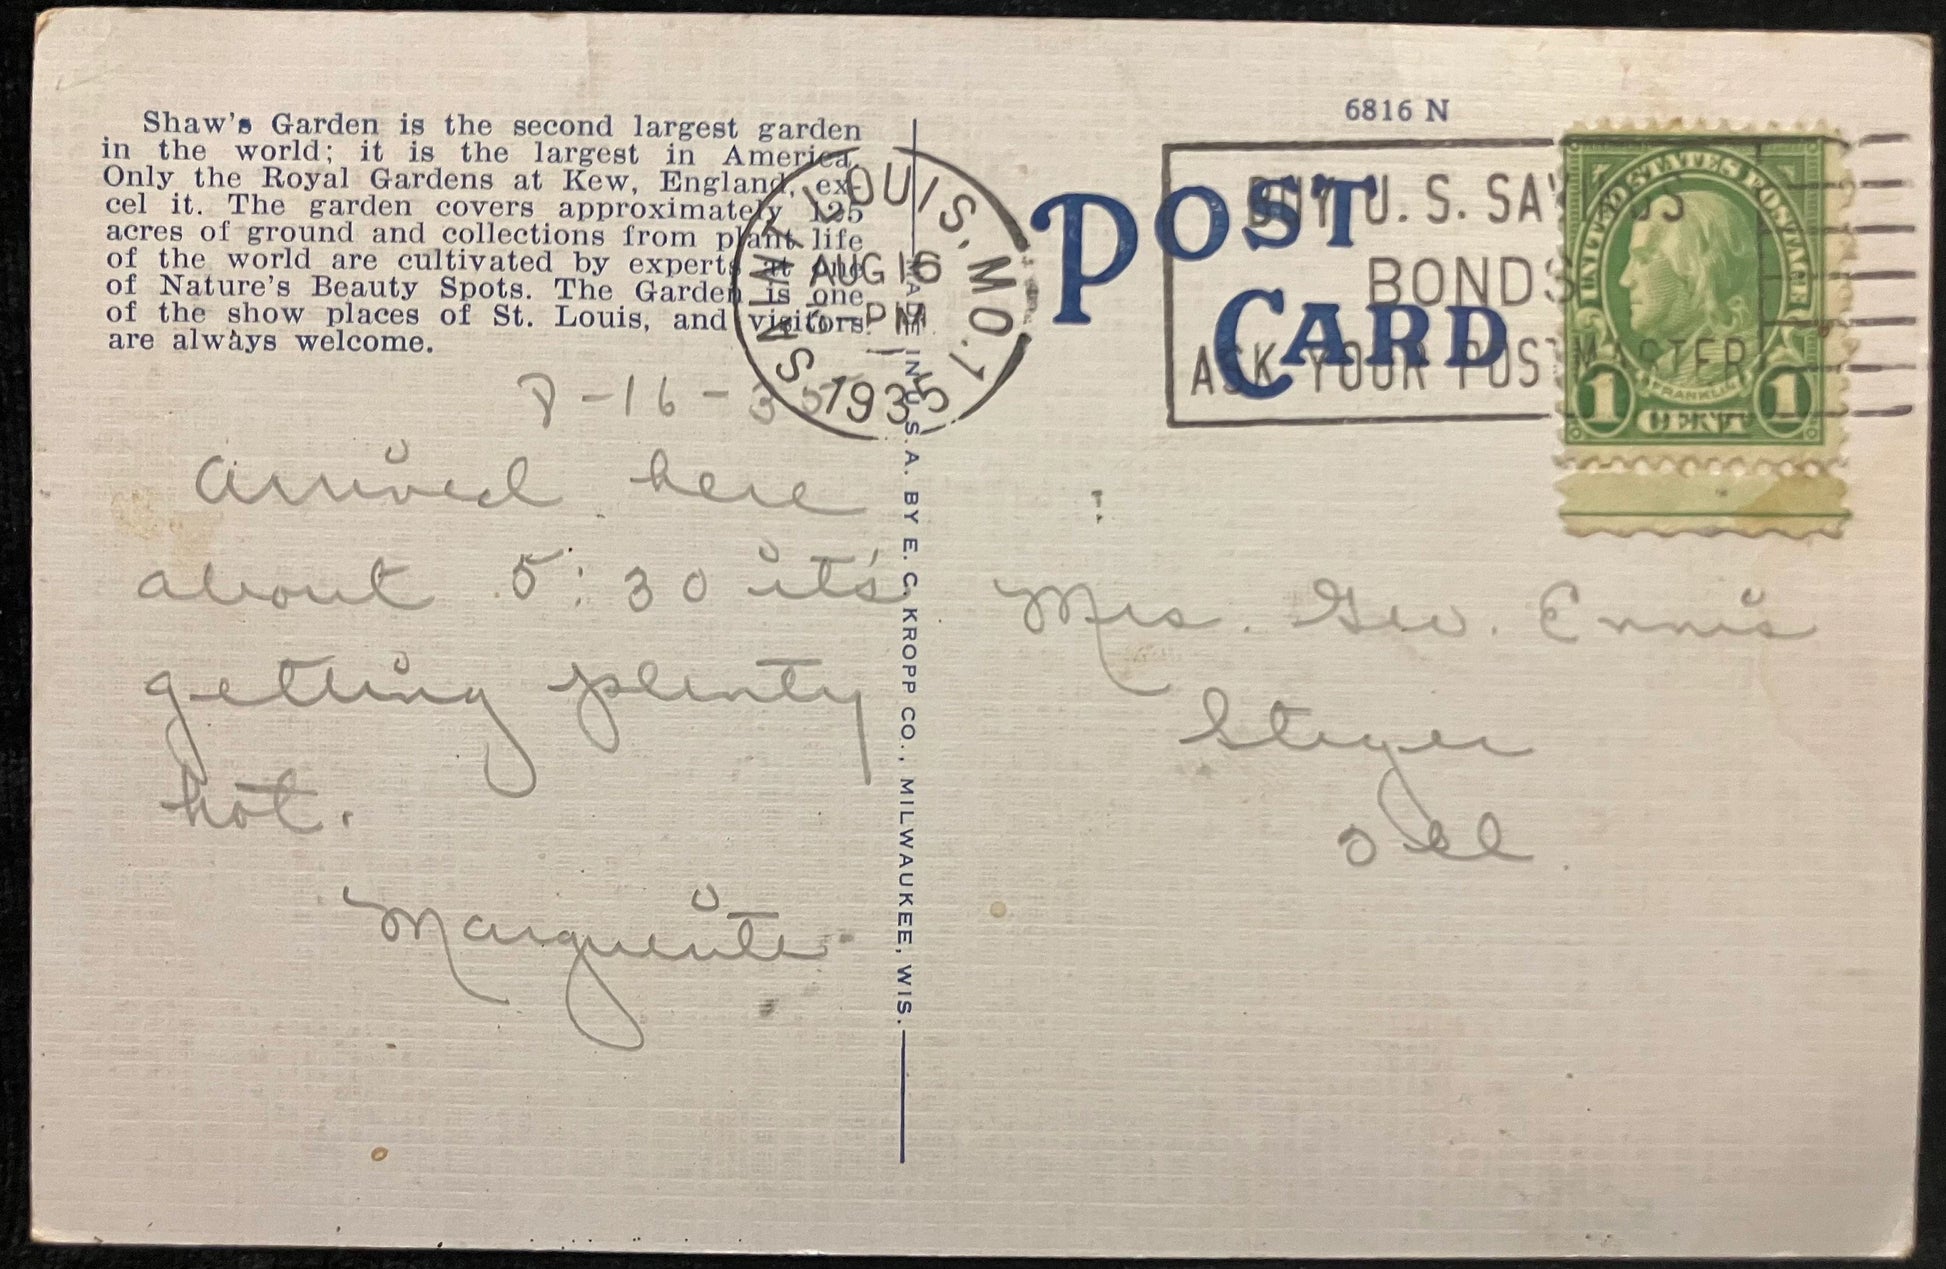 Shaw's Garden is the second largest garden
in the world; it is the largest in America.
Only the Royal Gardens at Kew, England, ex-
cel it. The garden covers approximately 125
acres of ground and collections from plant life
of the world are cultivated by experts at one
of Nature's Beauty Spots. The Garden is one
of the show places of St. Louis, and visitors
are always welcome.
8-16-35
Arrived here
about 5:30 it's
getting plenty
hot.
Marguerite
LOUIS, MO. 1
AUG 16
PM
1935
MADE IN U. S. A. BY E. C. KROPP CO., MILWAUKEE, WIS.
6816 N
POST
CARD
BUY U. S. SAVINGS
BONDS
ASK YOUR POSTMASTER
UNITED STATES POSTAGE
FRANKLIN
1 CENT 1
Mrs. Geo. Ennis
Steger
Ill